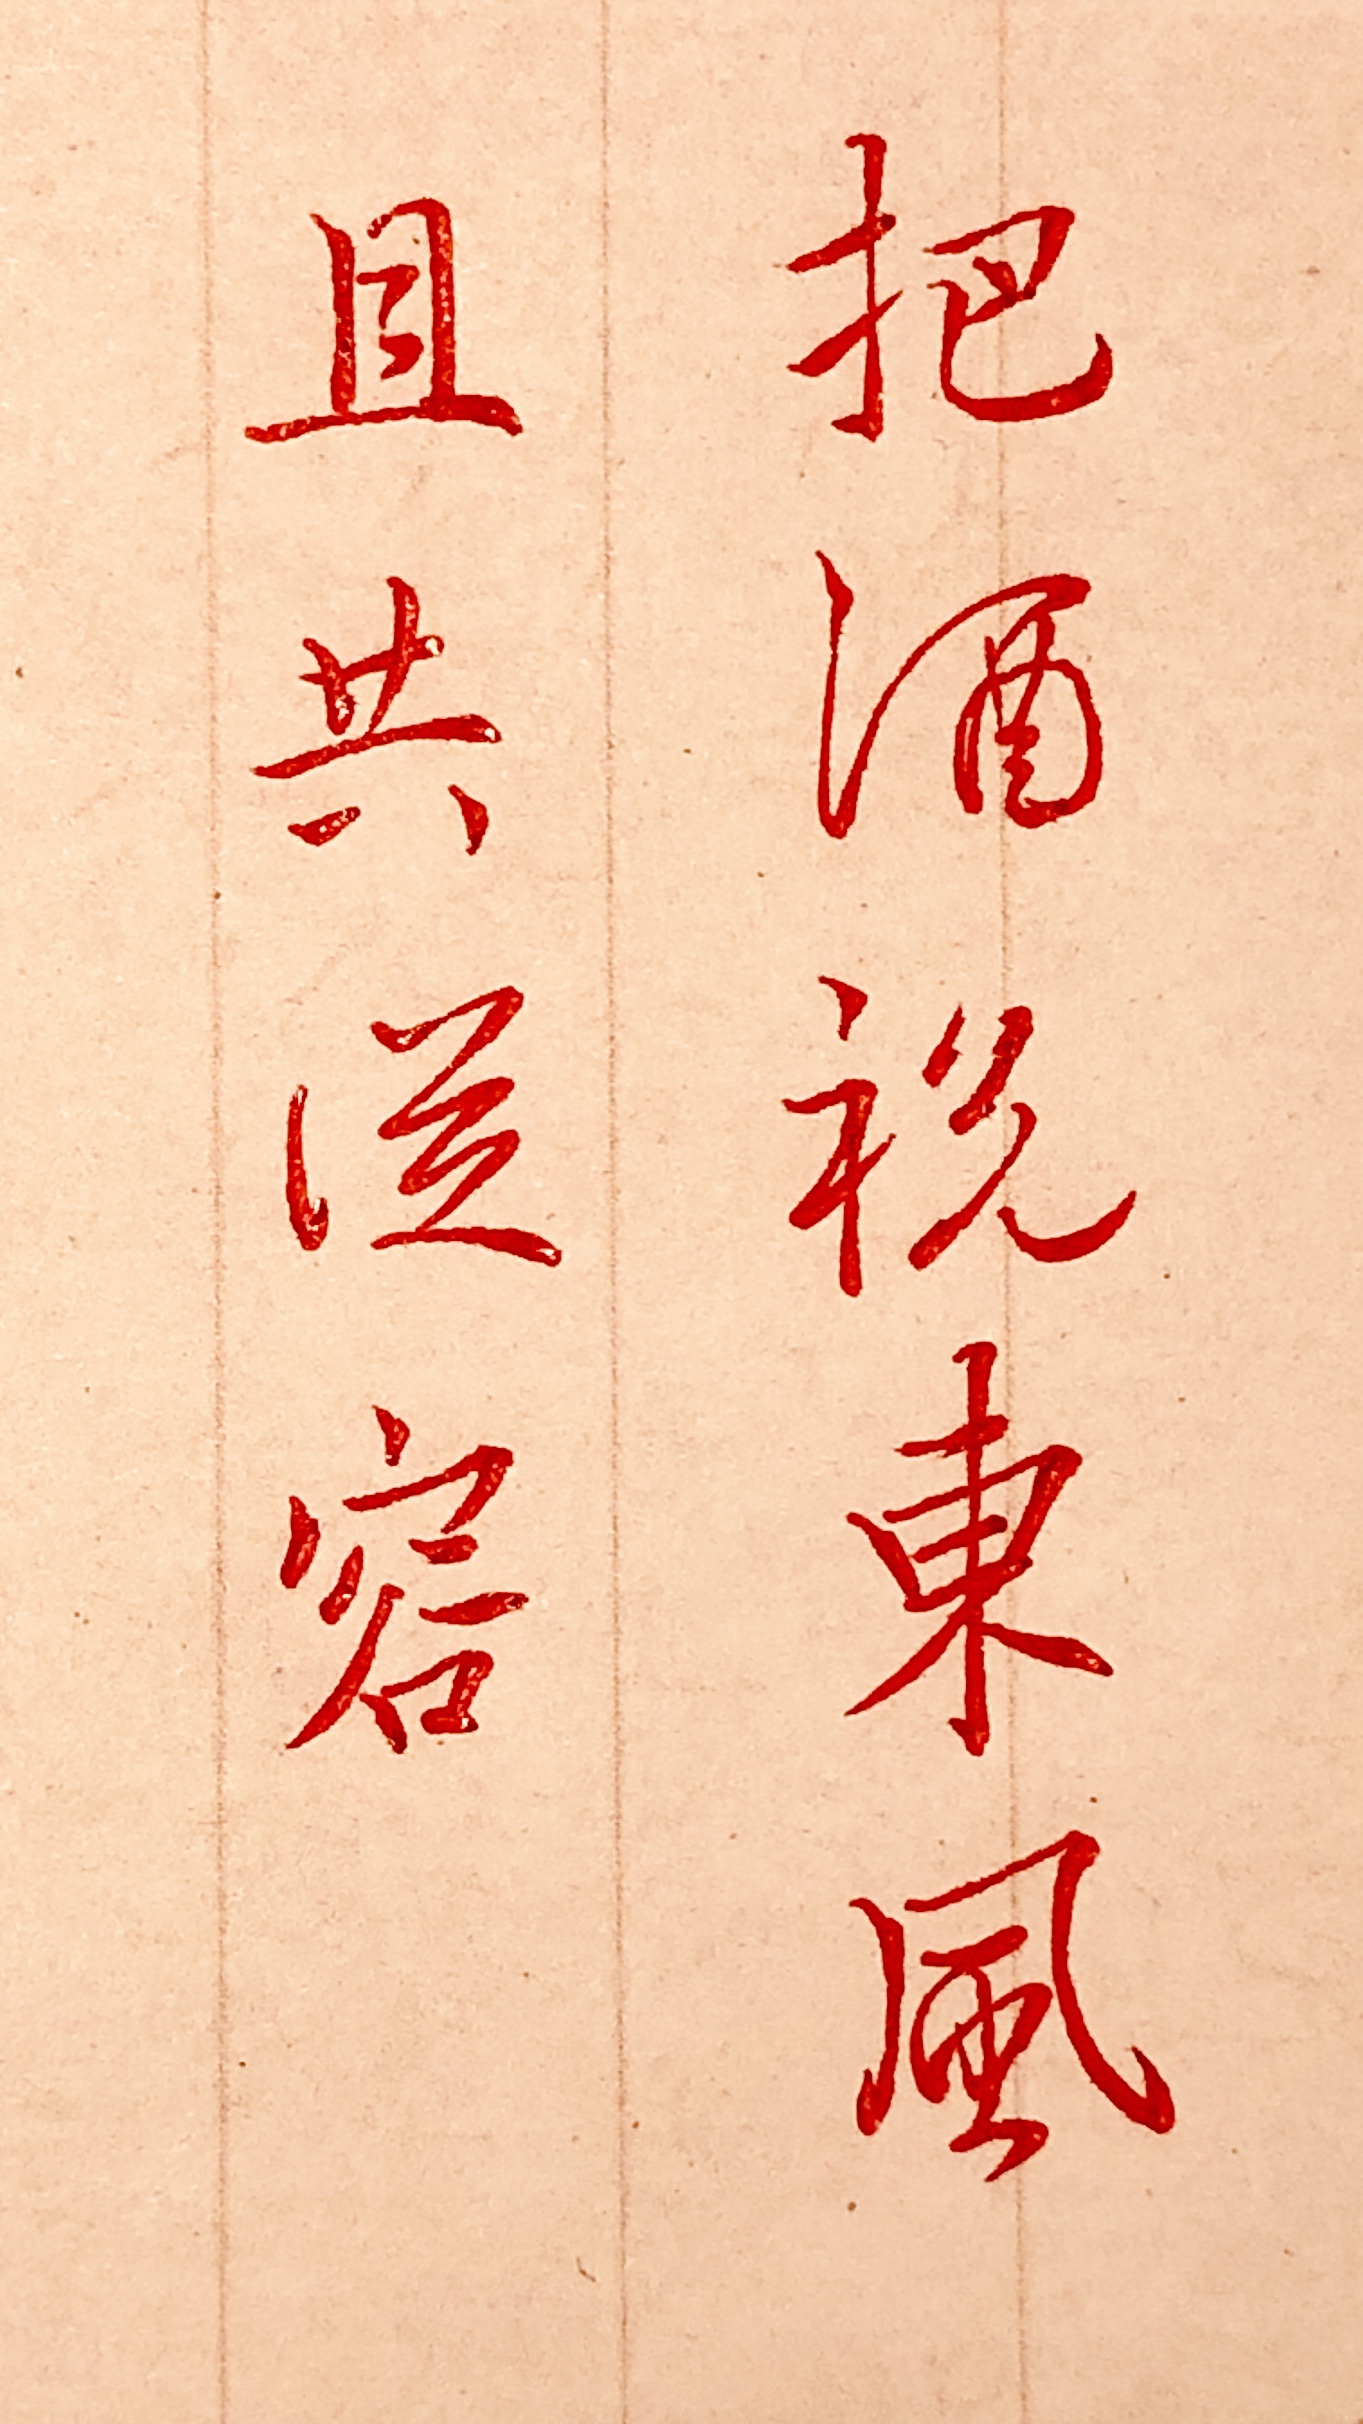 把酒祝東風
且共從容